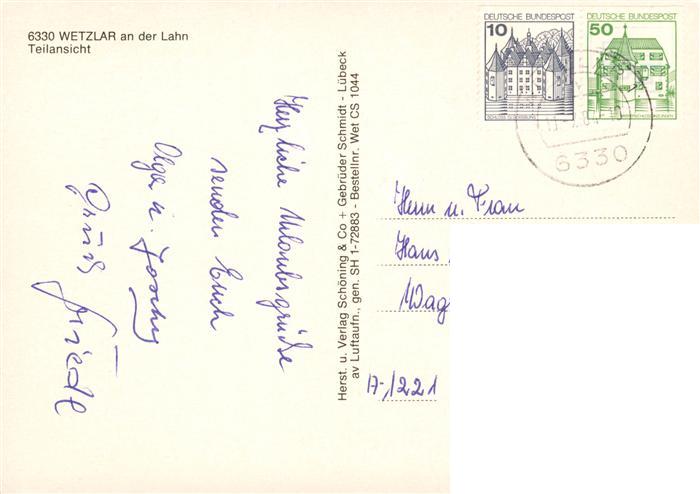 6330 WETZLAR an der Lahn
Teilansicht
Herzliche Urlaubsgrüße
senden Euch
Olga u.
Friedl
Herst. u. Verlag Schöning & Co + Gebrüder Schmidt - Lübeck
av Luftaufn., gen. SH 1-72883 - Bestellnr. Wet CS 1044
DEUTSCHE BUNDESPOST
10
SCHLOSS GLÜCKSBURG
DEUTSCHE BUNDESPOST
50
6330
Herrn u. Frau
Hans
Wag
A-1221